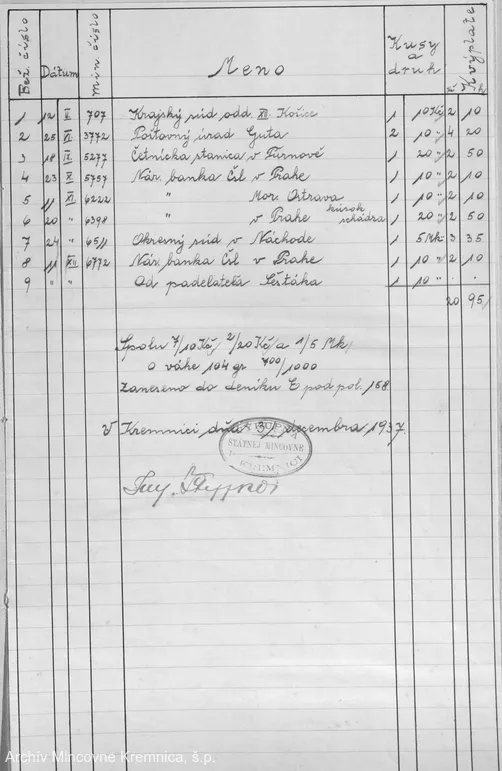 Bež. číslo Dátum min. číslo Meno Kusy a druh K výplate
K h
1 12 II 707 Krajský súd odd. XII. Košice 1 10 Kč 2 10
2 25 VI 3772 Poštovný úrad Guta 2 10 " 4 20
3 18 IX 5277 Četnícka stanica v Turnově 1 20 " 2 50
4 23 X 5757 Nár. banka Čsl. v Prahe 1 10 " 2 10
5 11 XI 6222 " Mor. Ostrava 1 10 " 2 10
6 20 " 6398 " v Prahe kúsok schádza 1 20 " 2 50
7 24 " 6511 Okresný súd v Náchode 1 5 Mk 3 35
8 11 XII 6772 Nár. banka Čsl. v Prahe 1 10 " 2 10
9 " " Od padelateľa Šestáka 1 10 " . .
20 95
Spolu 7/10 Kč, 2/20 Kč a 1/5 Mk,
o váhe 104 gr 700/1000
Zanesено do deníku E pod pol. 158.
V Kremnici dňa 31. decembra 1937.
STÁTNEJ MINCOVNE
V KREMNICI
Ing.
Archív Mincovne Kremnica, š.p.